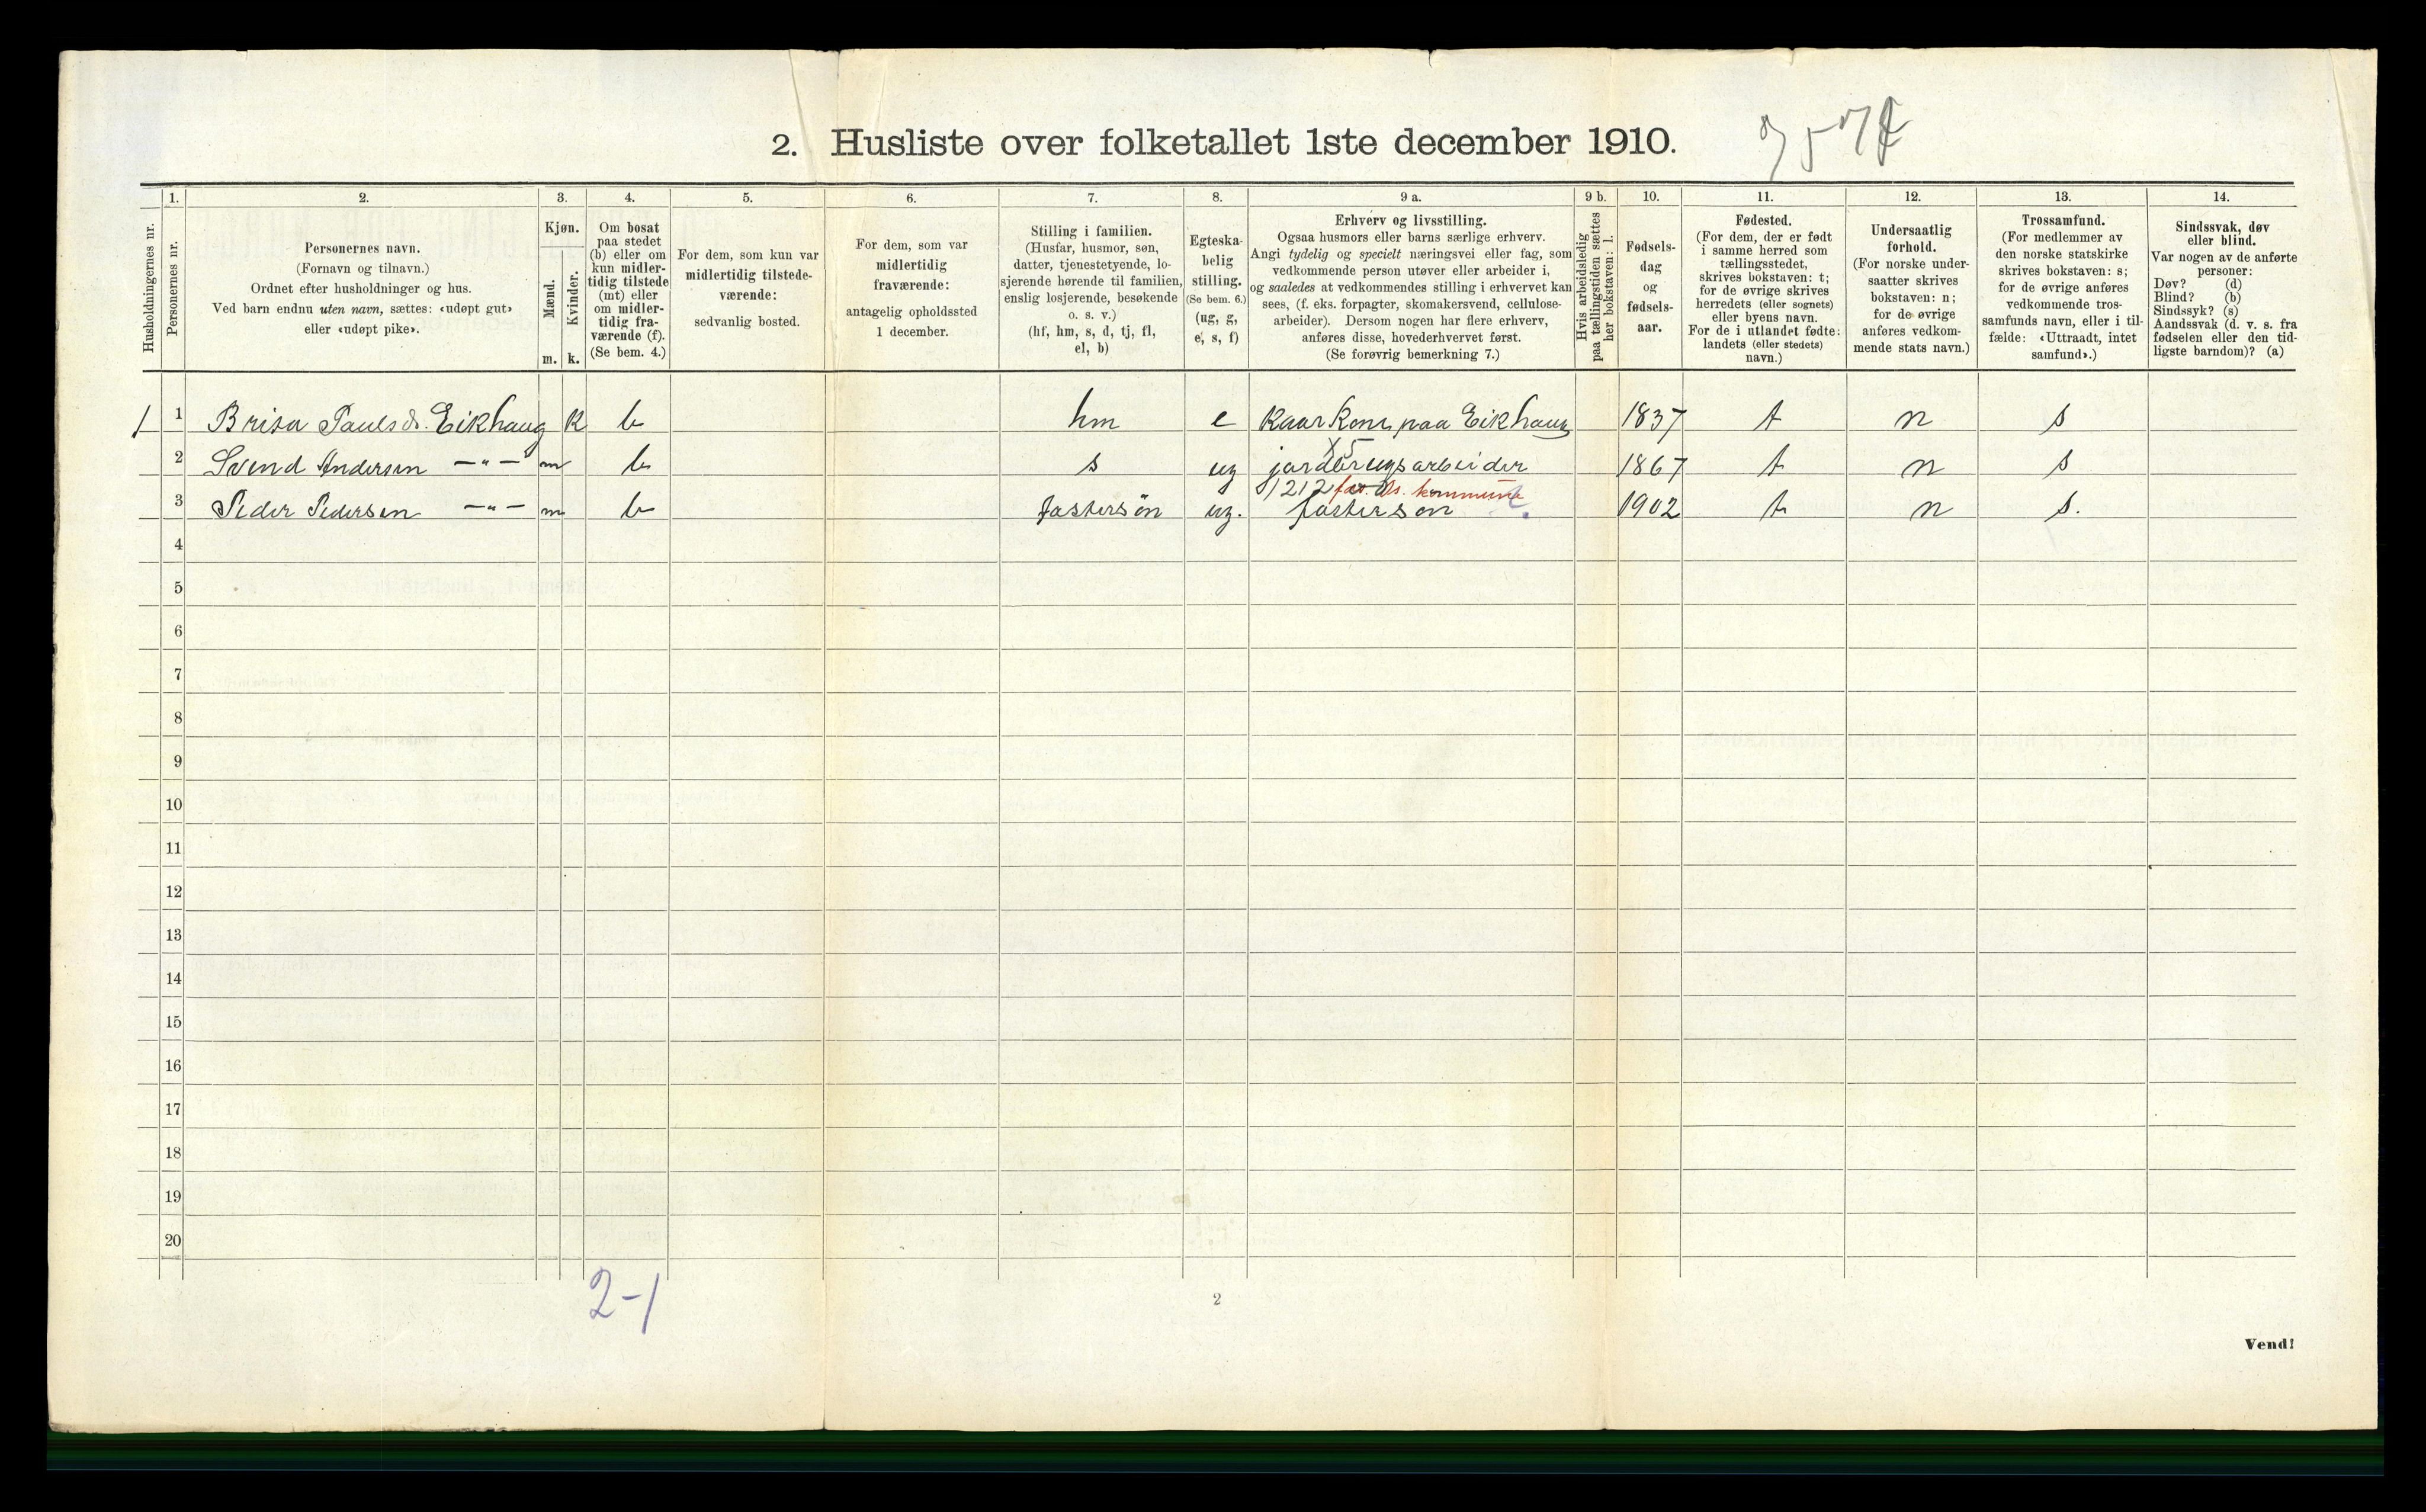 2. Husliste over folketallet 1ste december 1910.
Husholdningernes nr.
1.
Personernes nr.
2.
Personernes navn.
(Fornavn og tilnavn.)
Ordnet efter husholdninger og hus.
Ved barn endnu uten navn, sættes: «udøpt gut»
eller «udøpt pike».
3.
Kjøn.
Mænd.
Kvinder.
m. k.
4.
Om bosat
paa stedet
(b) eller om
kun midler-
tidig tilstede
(mt) eller
om midler-
tidig fra-
værende (f).
(Se bem. 4.)
5.
For dem, som kun var
midlertidig tilstede-
værende:
sedvanlig bosted.
6.
For dem, som var
midlertidig
fraværende:
antagelig opholdssted
1 december.
7.
Stilling i familien.
(Husfar, husmor, søn,
datter, tjenestetyende, lo-
sjerende hørende til familien,
enslig losjerende, besøkende
o. s. v.)
(hf, hm, s, d, tj, fl,
el, b)
8.
Egteska-
belig
stilling.
(Se bem. 6.)
(ug, g,
e, s, f)
9 a.
Erhverv og livsstilling.
Ogsaa husmors eller barns særlige erhverv.
Angi tydelig og specielt næringsvei eller fag, som
vedkommende person utøver eller arbeider i,
og saaledes at vedkommendes stilling i erhvervet kan
sees, (f. eks. forpagter, skomakersvend, cellulose-
arbeider). Dersom nogen har flere erhverv,
anføres disse, hovederhvervet først.
(Se forøvrig bemerkning 7.)
9 b.
Hvis arbeidsledig
paa tællingstiden sættes
her bokstaven: l.
10.
Fødsels-
dag
og
fødsels-
aar.
11.
Fødested.
(For dem, der er født
i samme herred som
tællingsstedet,
skrives bokstaven: t;
for de øvrige skrives
herredets (eller sognets)
eller byens navn.
For de i utlandet fødte:
landets (eller stedets)
navn.)
12.
Undersaatlig
forhold.
(For norske under-
saatter skrives
bokstaven: n;
for de øvrige
anføres vedkom-
mende stats navn.)
13.
Trossamfund.
(For medlemmer av
den norske statskirke
skrives bokstaven: s;
for de øvrige anføres
vedkommende tros-
samfunds navn, eller i til-
fælde: «Uttraadt, intet
samfund».)
14.
Sindssvak, døv
eller blind.
Var nogen av de anførte
personer:
Døv? (d)
Blind? (b)
Sindssyk? (s)
Aandssvak (d. v. s. fra
fødselen eller den tid-
ligste barndom)? (a)
1 1 Brita Paulsd. Eikhaug K b hm e Kaarkone paa Eikhaug 1837 t n s
2 Svend Andersen —"— m b s ug jordbrugsarbeider 1867 t n s
1212 kommune
3 Peder Pedersen —"— m b fostersøn ug. fosterson 1902 t n s.
4
5
6
7
8
9
10
11
12
13
14
15
16
17
18
19
20
2-1
2
Vend!